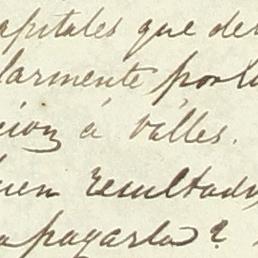 apitales que de
larmente por l
cion á Valles.
uen resultado,
a pagarla?